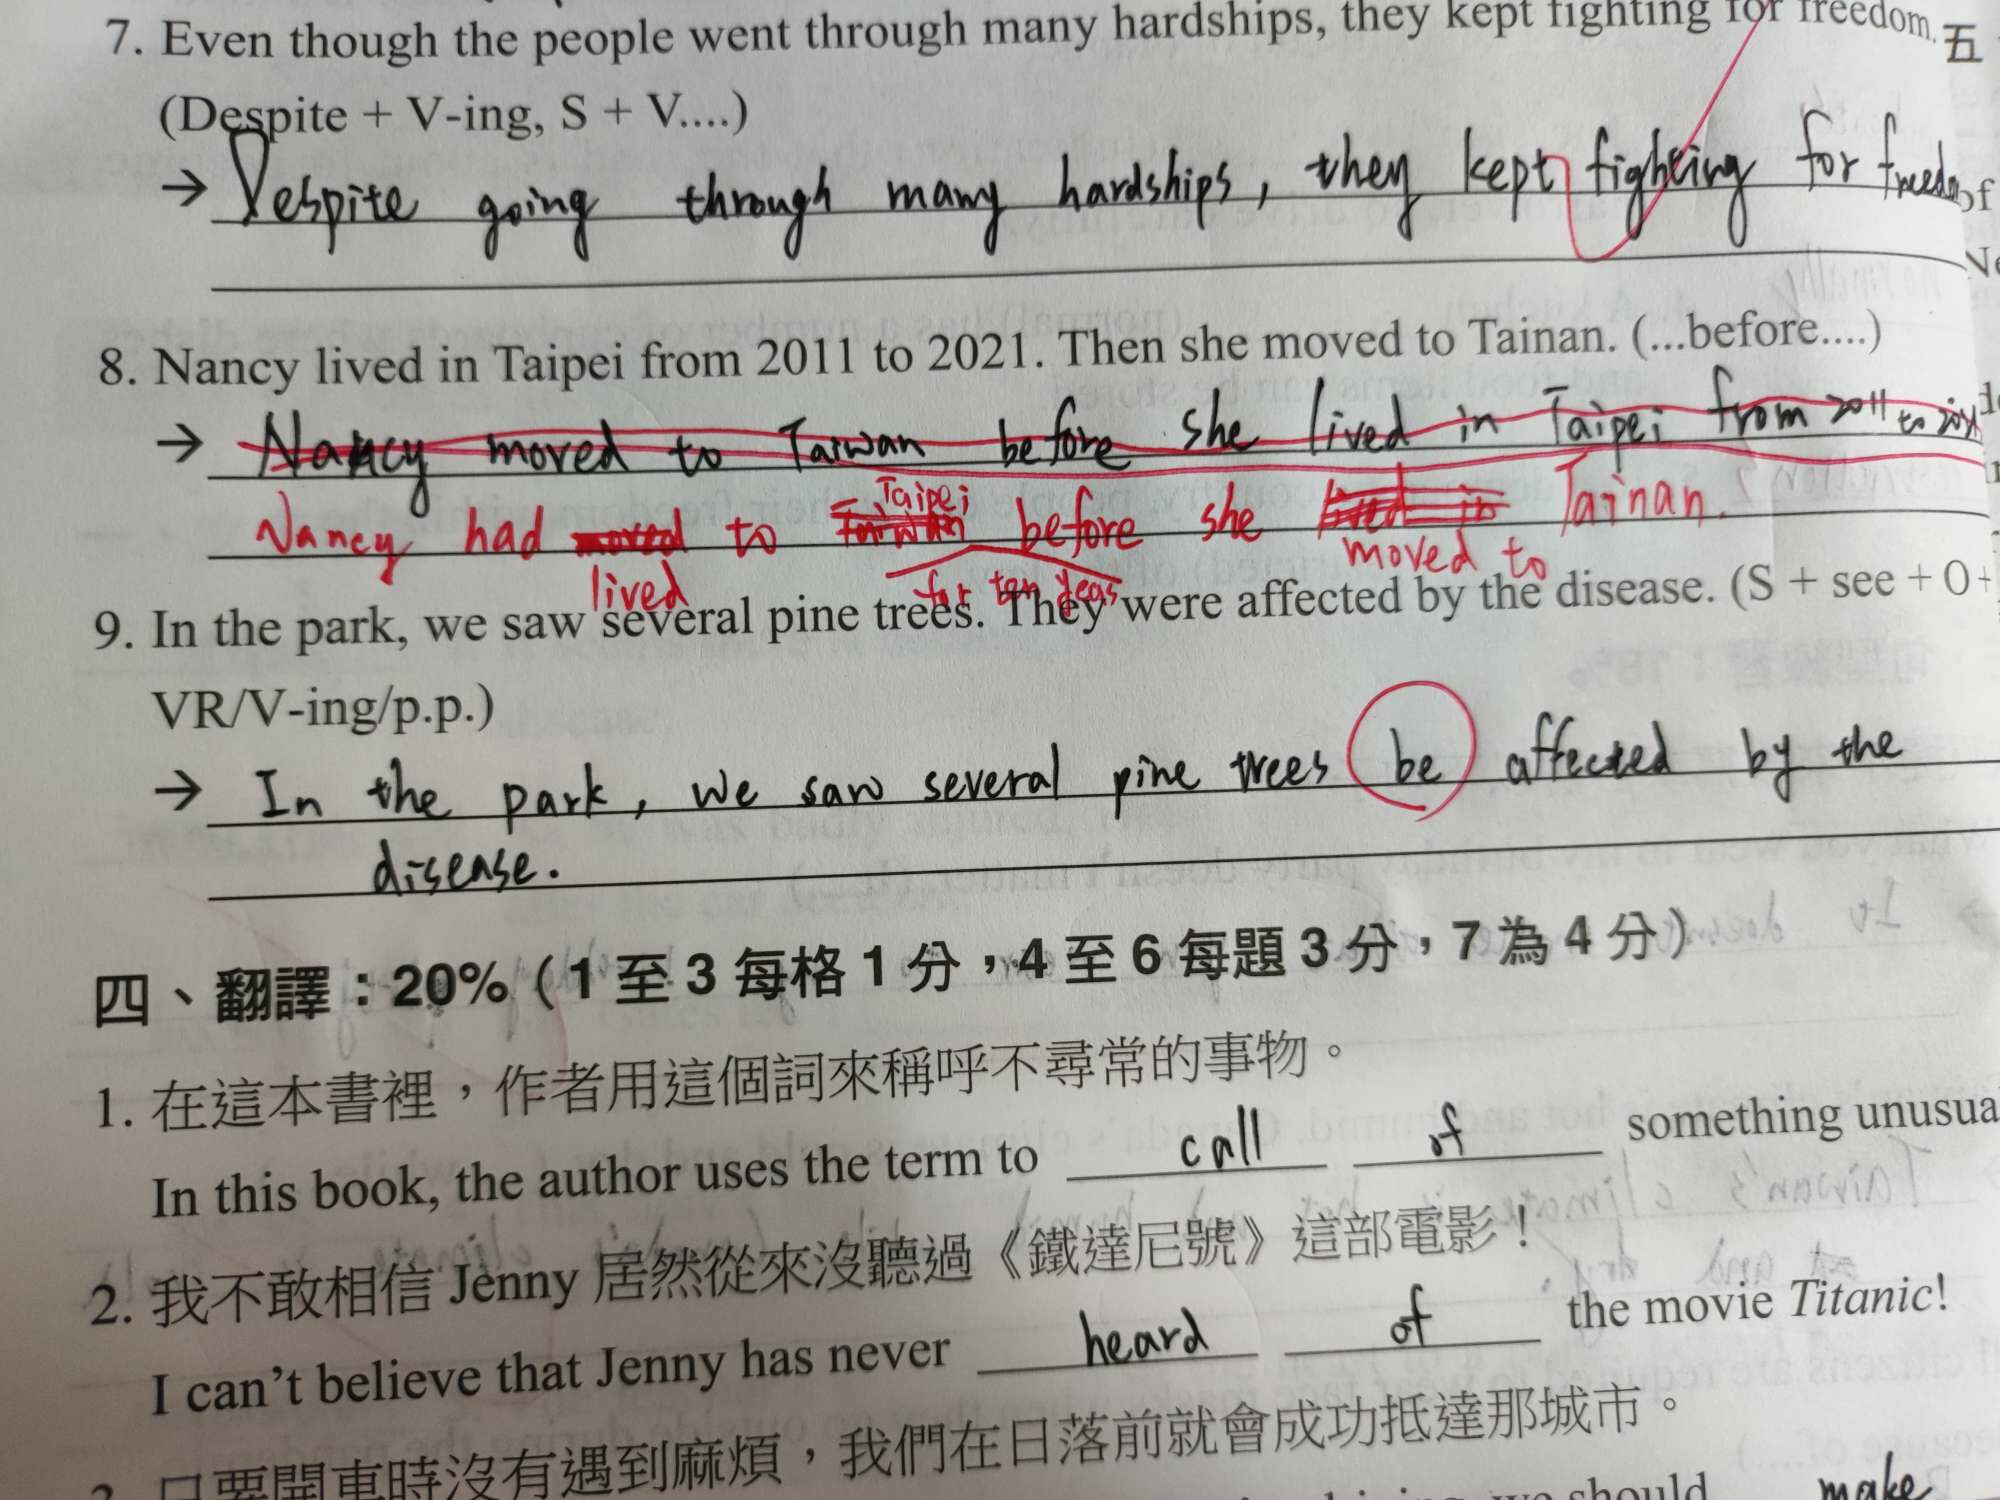 7. Even though the people went through many hardships, they kept fighting for freedom.
五
(Despite + V-ing, S + V....)
→ Despite going through many hardships, they kept fighting for freedom
of
8. Nancy lived in Taipei from 2011 to 2021. Then she moved to Tainan. (...before....)
→ Nancy moved to Taiwan before she lived in Taipei from 2011 to 2021
Taipei
Nancy had moved to Taiwan before she lived in Tainan.
lived for ten yeas moved to
9. In the park, we saw several pine trees. They were affected by the disease. (S + see + O +
VR/V-ing/p.p.)
→ In the park, we saw several pine trees be affected by the
disease.
四、翻譯：20%（1 至 3 每格 1 分，4 至 6 每題 3 分，7 為 4 分）
1. 在這本書裡，作者用這個詞來稱呼不尋常的事物。
In this book, the author uses the term to call of something unusua
2. 我不敢相信 Jenny 居然從來沒聽過《鐵達尼號》這部電影！
I can't believe that Jenny has never heard of the movie Titanic!
3. 只要開車時沒有遇到麻煩，我們在日落前就會成功抵達那城市。
we should make